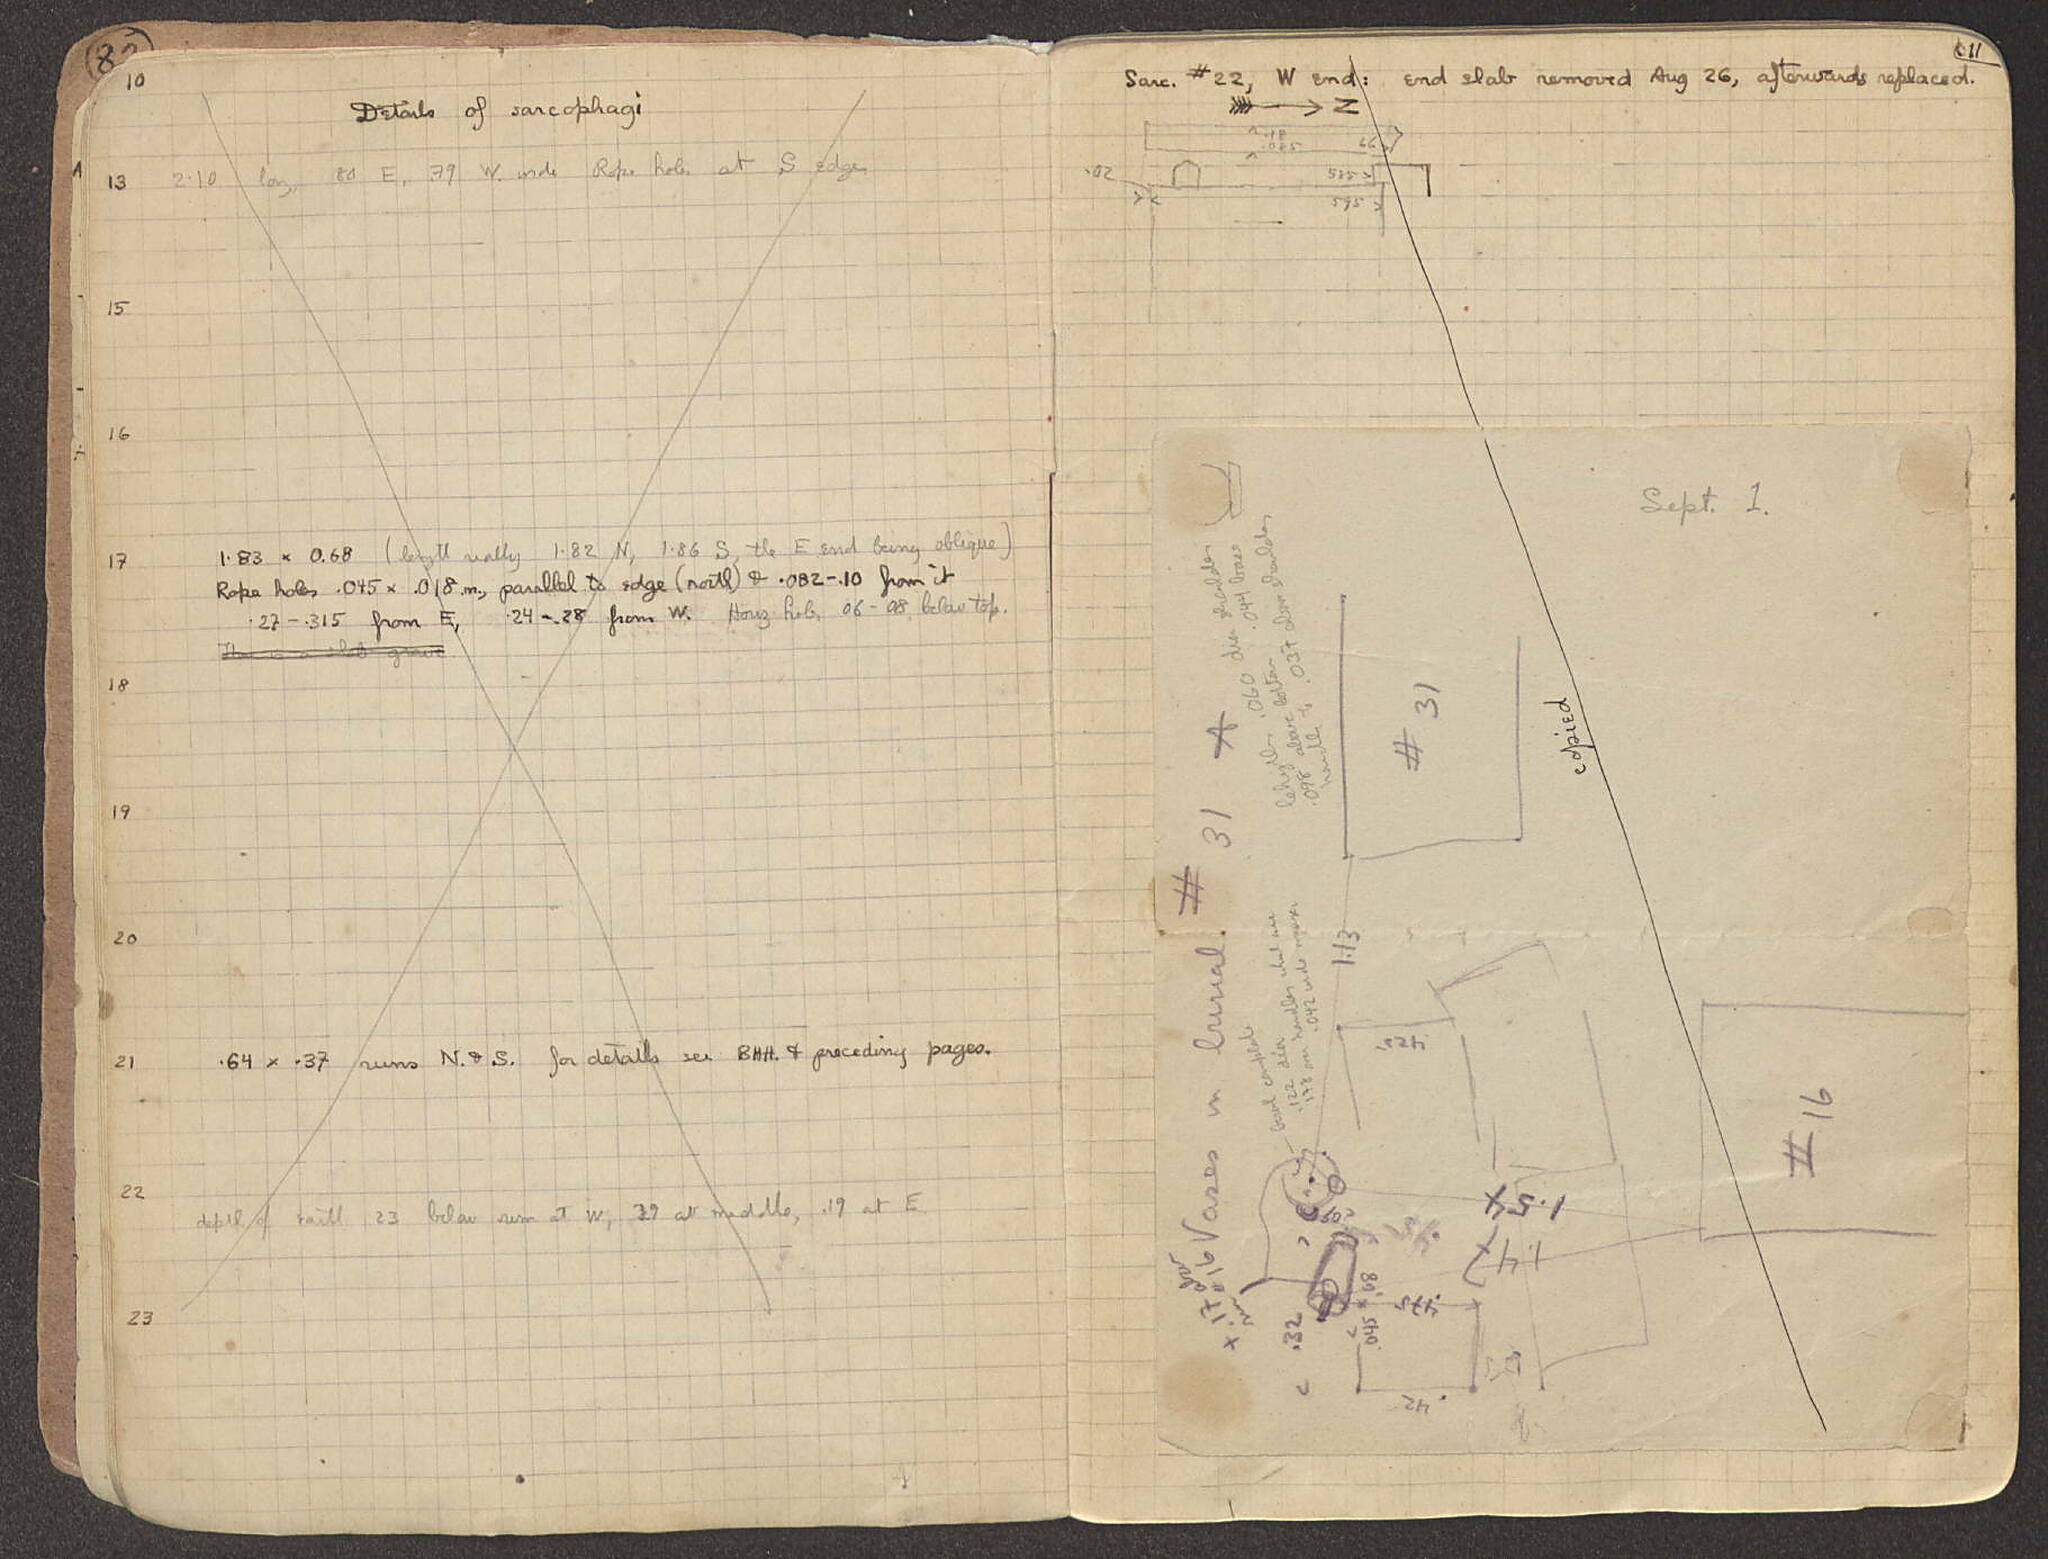 10
Details of sarcophagi
13 2.10 long, 80 E, .79 W. inde Rope holes at S edge
15
16
17 1.83 × 0.68 (length really 1.82 N, 1.86 S, the E end being oblique)
Rope holes .045 × .018 m., parallel to edge (north) & .082-.10 from it
.27-.315 from E, .24-.28 from W. Horiz hole 06-08 below top.
This is a slab grave
18
19
20
21 .64 × .37 runs N. & S. for details see BHH. & preceding pages.
22 depth of earth 23 below rim at W, 39 at middle, .19 at E
23
11
Sarc. #22, W End: End slab removed Aug 26, afterwards replaced.
N
.18
.085
.02
.585
.595
Sept. 1.
copied
Vases in burial # 31 A
.060 diam shoulder .044 base
.098 above bottom
handle to .037 above shoulder
# 31
1.13
bowl complete
.122 diam
.042
# 16
1.54
1.47
.475
.32
.045 × .68
.42